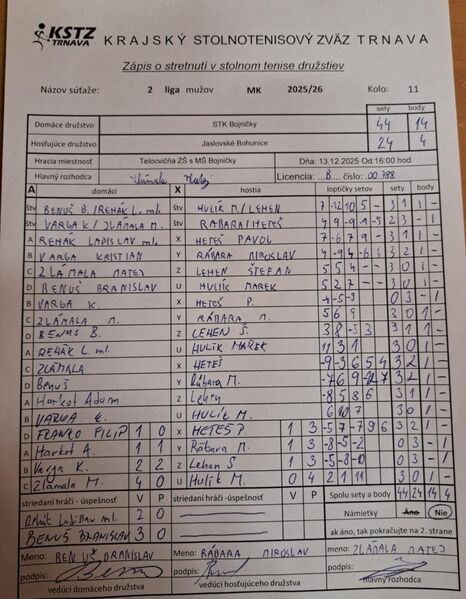 KSTZ TRNAVA
KRAJSKÝ STOLNOTENISOVÝ ZVÄZ TRNAVA
Zápis o stretnutí v stolnom tenise družstiev
Názov súťaže: 2 liga mužov MK 2025/26 Kolo: 11
sety body
Domáce družstvo STK Bojničky 44 14
Hosťujúce družstvo Jaslovské Bohunice 24 4
Hracia miestnosť Telocvičňa ZŠ s MŠ Bojničky Dňa: 13.12.2025 Od:16:00 hod.
Hlavný rozhodca Zlámala Matej Licencia: B číslo: 00788
A domáci X hostia loptičky setov sety body
štv BENUŠ B./REHÁK L. ml. štv HULÍK M/LEHEN 7 -12 10 5 - 3 1 1 -
štv VARGA K/ZLÁMALA M. štv RÁBARA/HETEŠ 2 3 - 1
A REHÁK LADISLAV ml. X HETEŠ PAVOL 7 -6 7 9 - 3 1 1 -
B VARGA KRISTIAN Y RÁBARA MIROSLAV 4 -9 4 -6 6 3 2 1 -
C ZLÁMALA MATEJ Z LEHEN ŠTEFAN 5 5 4 - - 3 0 1 -
D BENUŠ BRANISLAV U HULÍK MAREK 5 2 7 - - 3 0 1 -
B VARGA K X HETEŠ P. -4 -5 -3 0 3 - 1
C ZLÁMALA M. Y RÁBARA M. 5 6 9 3 0 1 -
D BENUS B. Z LEHEN Š. 3 1 1 -
A REHÁK L. ml U HULÍK MAREK 11 3 1 3 0 1 -
C ZLÁMALA X HETEŠ -9 3 -6 5 4 3 2 1 -
D Benuš Y Rábara M. 3 2 1 -
A Harkot Adam Z Lehen -8 5 8 6 3 1 1 -
B VARGA K. U HULÍK M. 6 10 7 3 0 1 -
D FLANKO FILIP 1 0 X HETEŠ P 1 3 -5 7 -7 9 6 3 2 1 -
A Harkot A. 1 1 Y Rábara M. 1 3 -8 -5 -2 0 3 - 1
B Varga K. 2 2 Z Lehen Š 1 3 -5 -8 -10 0 3 - 1
C Zlámala M. 4 0 U Hulík M. 0 4 2 11 11 3 0 1 -
striedaní hráči - úspešnosť V P striedaní hráči - úspešnosť V P Spolu sety a body 44 24 14 4
Rehák Ladislav ml. 2 0 Námietky Áno Nie
BENUŠ BRANISLAV 3 0 ak áno, tak pokračujte na 2. strane
Meno: BENUŠ BRANISLAV Meno: RÁBARA MIROSLAV meno: ZLÁMALA MATEJ
podpis: podpis: podpis:
vedúci domáceho družstva vedúci hosťujúceho družstva hlavný rozhodca